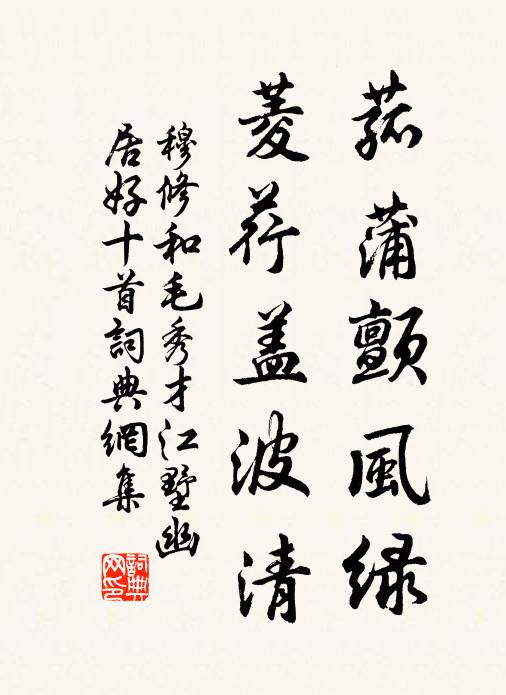 菰蒲顫風緑
菱荇盖波清
穆修和毛秀才江墅幽
居好十首詞典網集
詞典
网印